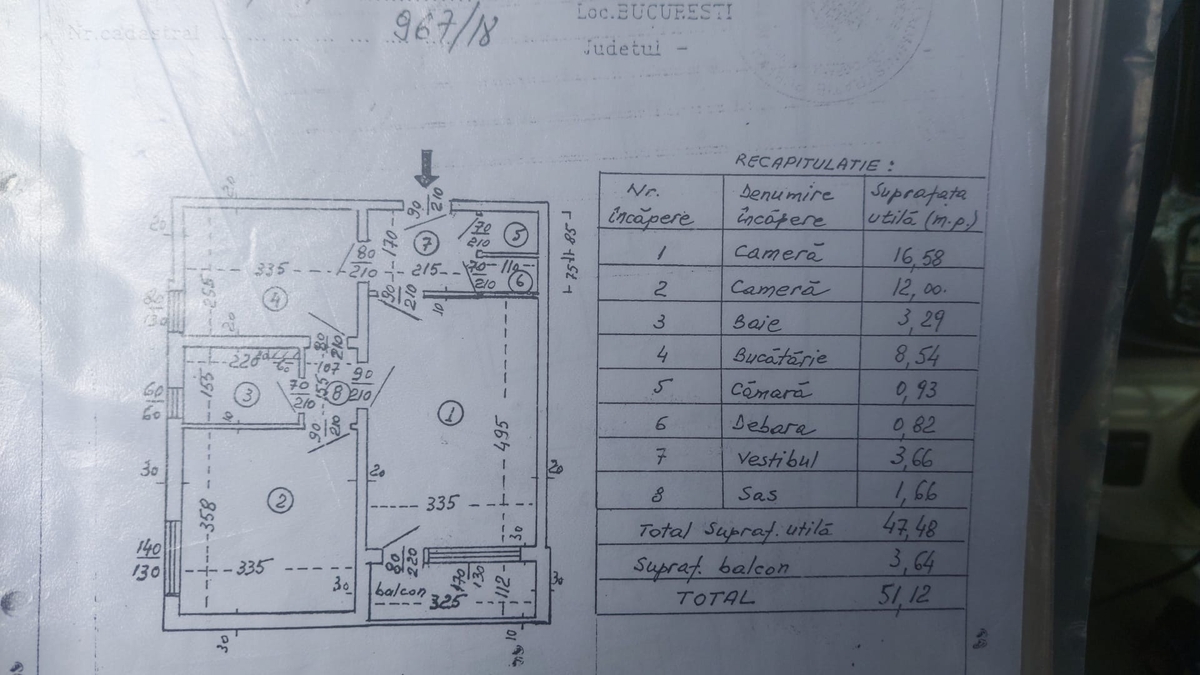 Nr.cadastral ... 967/18
Loc.BUCURESTI
Judetul -
RECAPITULATIE :
Nr. încăpere Denumire încăpere Suprafața utilă (m.p.)
1 Cameră 16,58
2 Cameră 12,00.
3 Baie 3,29
4 Bucătărie 8,54
5 Cămară 0,93
6 Debara 0,82
7 Vestibul 3,66
8 Sas 1,66
Total Supraf. utilă 47,48
Supraf. balcon 3,64
TOTAL 51,12
20
90/210
20
170
7
70/210
5
85
80/210
335
215
70/210
110
6
75
255
4
90/210
10
20
80/210
228
107
155
3
70/210
155
8
90/210
60/60
10
90/210
1
495
30
20
20
2
358
335
140/130
335
30
30
80/220
170/130
112
30
balcon
325
30
10